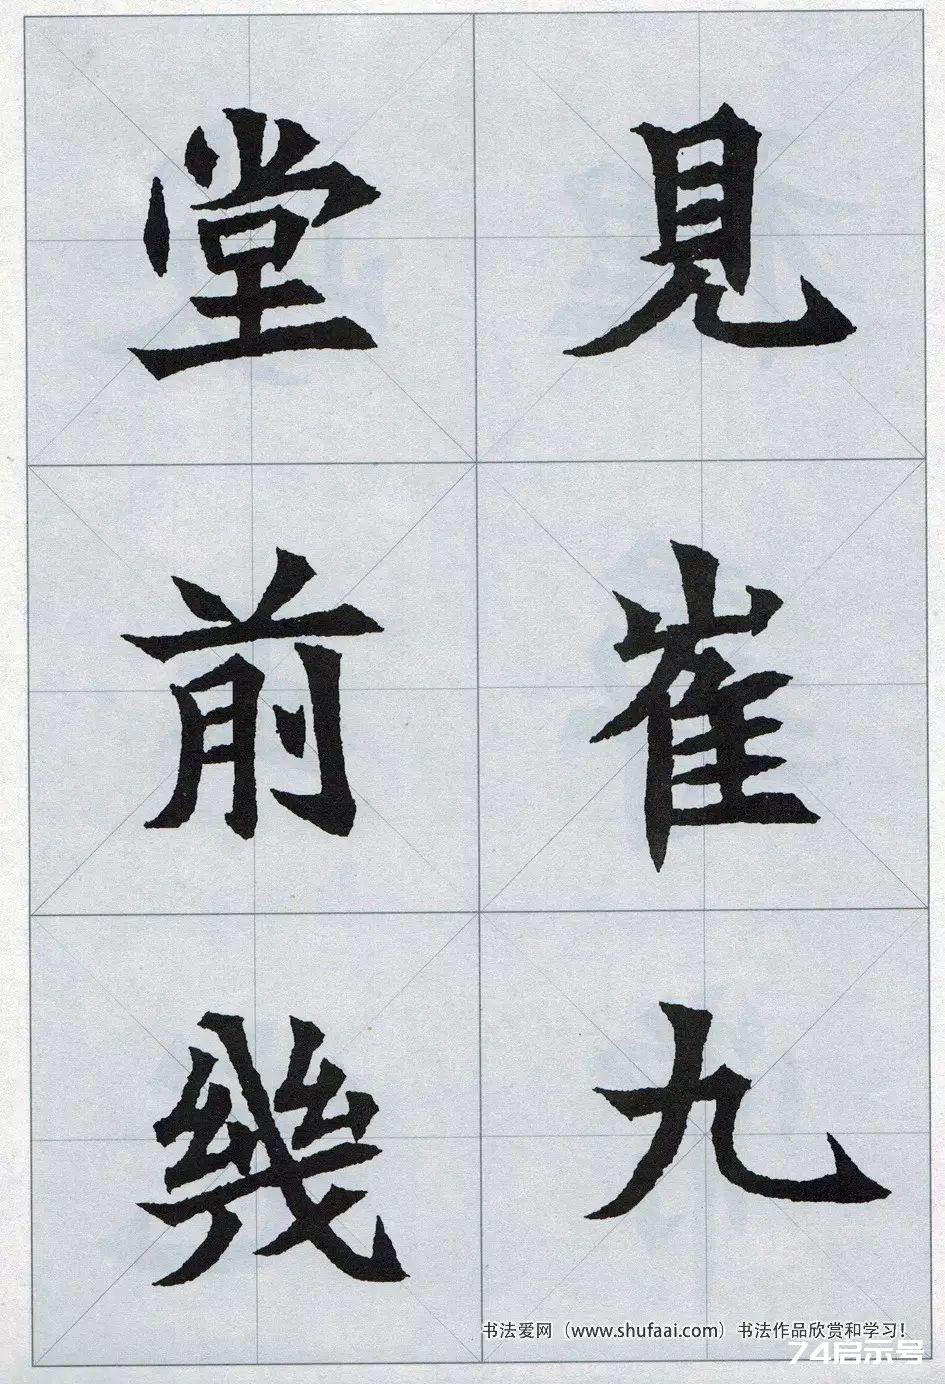 見崔九
堂前幾
书法爱网（www.shufaai.com）书法作品欣赏和学习！
74启示号